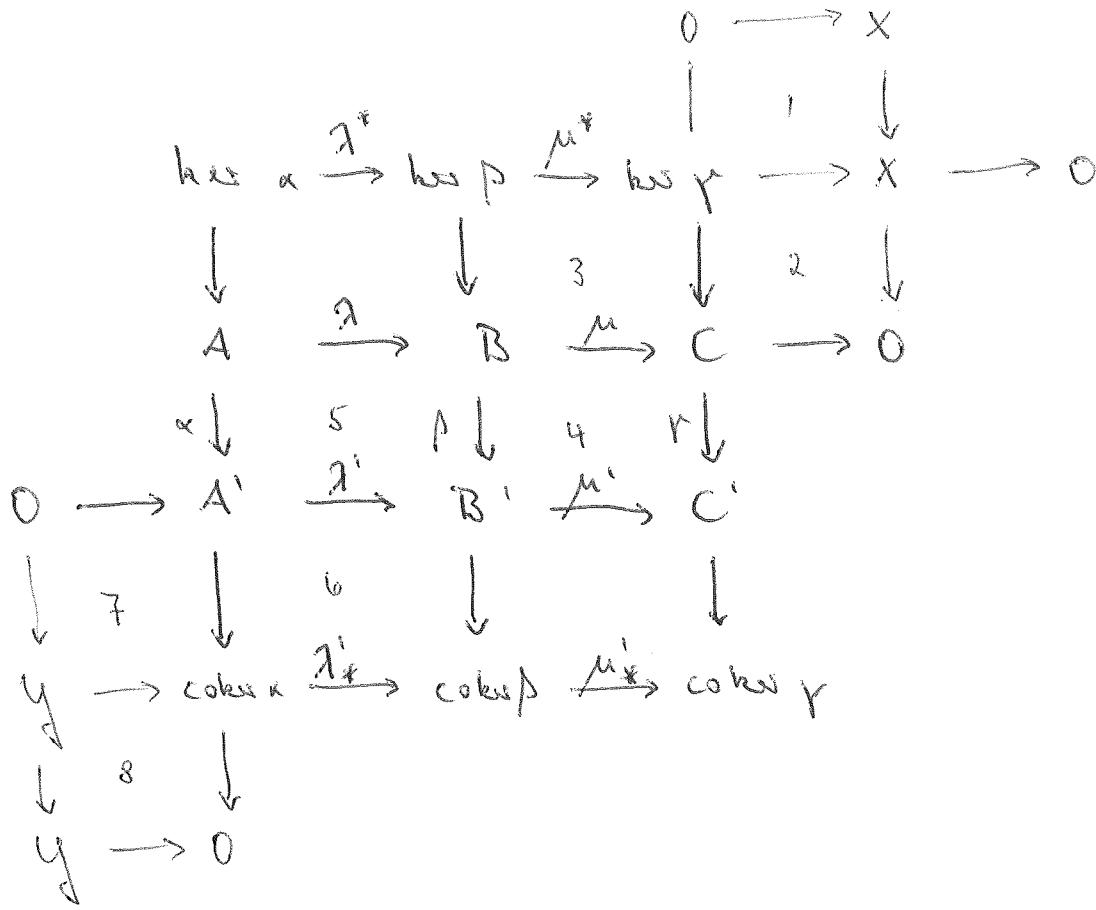 0 → X
1
ker α λ* → ker β μ* → ker γ → X → 0
3 2
A λ → B μ → C → 0
α 5 β 4 γ
0 → A' λ' → B' μ' → C'
7 6
y → coker α λ'* → coker β μ'* → coker γ
8
y → 0